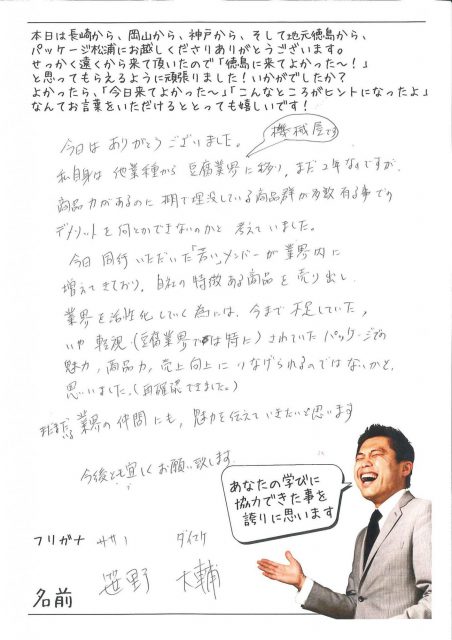 本日は長崎から、岡山から、神戸から、そして地元徳島から、
パッケージ松浦にお越しくださりありがとうございます。
せっかく遠くから来て頂いたので「徳島に来てよかった～！」
と思ってもらえるように頑張りました！いかがでしたか？
よかったら、「今日来てよかった～」「こんなところがヒントになったよ」
なんてお言葉をいただけるととっても嬉しいです！
今日はありがとうございました。
機械屋です
私自身は他業種から豆腐業界に移り、まだ2年なのですが、
商品力があるのに棚で埋没している商品群が多数有る事での
デメリットを何とかできないのかと考えていました。
今日同行いただいた「若い」メンバーが業界内に
増えてきており、自社の特徴ある商品を売り出し
業界を活性化していく為には、今まで不足していた、
いや軽視(豆腐業界では特に)されていたパッケージでの
魅力、商品力、売上向上につなげられるのではないかと、
思いました。(再確認できました。)
業界の仲間にも、魅力を伝えていきたいと思います
今後とも宜しくお願い致します。
あなたの学びに
協力できた事を
誇りに思います
フリガナ ササノ ダイスケ
名前 笹野 大輔